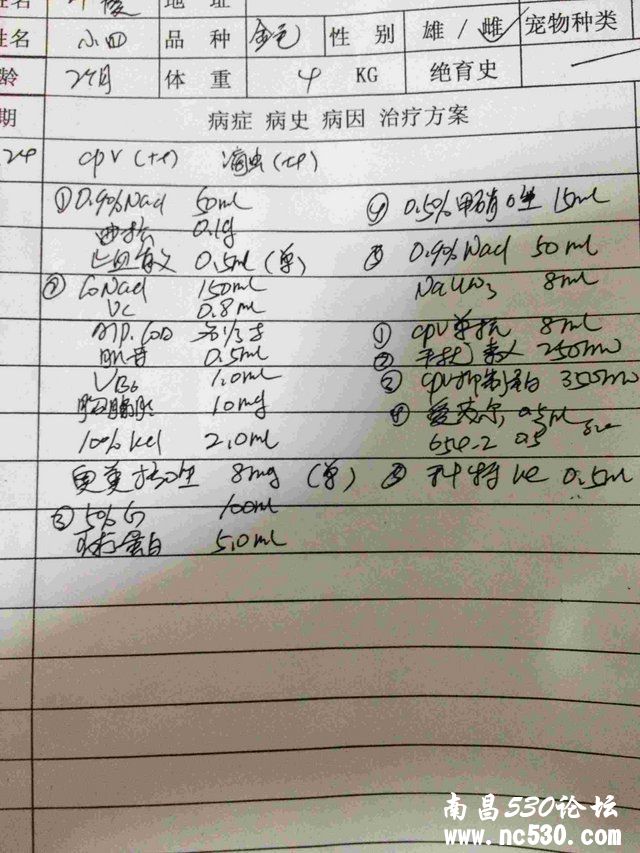 姓名 地 址
姓名 小四 品 种 金毛 性 别 雄 / 雌 宠物种类
龄 2个月 体 重 4 KG 绝育史
期 病症 病史 病因 治疗方案
24 CPV (++) 滴虫(++)
① 0.9% Nacl 50ml
0.1g
止血敏 0.5ml (单)
② Nacl 150ml
VC 0.8ml
ATP. COA 各1/3支
肌苷 0.5ml
VB6 1.0ml
10mg
10% Kcl 2.0ml
8mg (单)
③ 5% G 100ml
蛋白 5.0ml
④ 0.5% 甲硝唑 15ml
⑤ 0.9% Nacl 50ml
NaHCO3 8ml
① CPV单抗 8ml
② 干扰素 250
③ CPV抑制蛋白 350
④ 爱茂尔 0.5ml
654-2 0.5
⑤ 科特 0.5ml
南昌530论坛
www.nc530.com